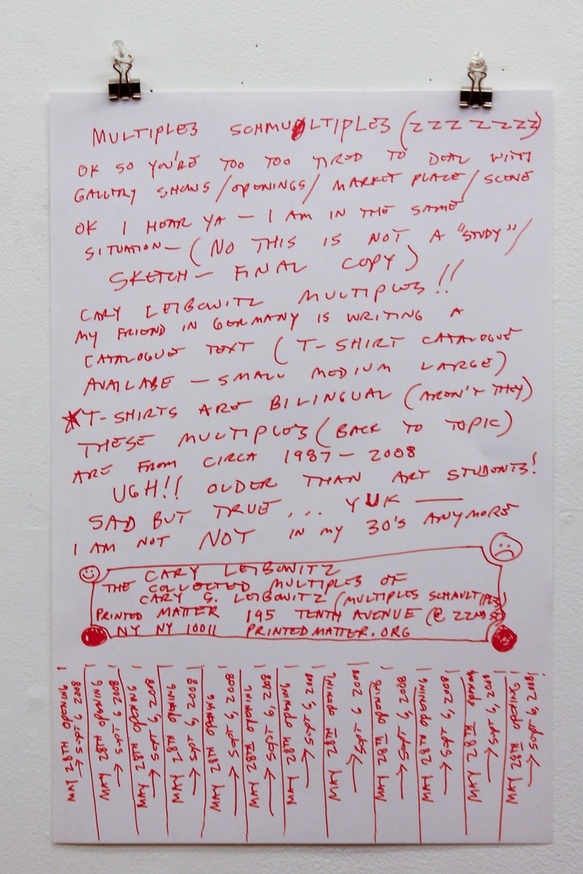 MULTIPLES SCHMULTIPLES (ZZZ ZZZZ)
OK SO YOU'RE TOO TOO TIRED TO DEAL WITH
GALLERY SHOWS/OPENINGS/ MARKET PLACE/ SCENE
OK I HEAR YA — I AM IN THE SAME
SITUATION — (NO THIS IS NOT A "STUDY"/
SKETCH — FINAL COPY)
CARY LEIBOWITZ MULTIPLES!!
MY FRIEND IN GERMANY IS WRITING A
CATALOGUE TEXT (T-SHIRT CATALOGUE
AVAILABE — SMALL MEDIUM LARGE)
*T-SHIRTS ARE BILINGUAL (AREN'T THEY)
THESE MULTIPLES (BACK TO TOPIC)
ARE FROM CIRCA 1987 - 2008
UGH!! OLDER THAN ART STUDENTS!
SAD BUT TRUE... YUK —
I AM NOT NOT IN MY 30'S ANYMORE
CARY LEIBOWITZ
THE COLLECTED MULTIPLES OF
CARY S. LEIBOWITZ (MULTIPLES SCHMULTIPLES)
PRINTED MATTER 195 TENTH AVENUE (@ 22ND ST)
NY NY 10011 PRINTEDMATTER.ORG
MAY 28TH OPENING
→ SEPT 6, 2008
MAY 28TH OPENING
→ SEPT 6, 2008
MAY 28TH OPENING
→ SEPT 6, 2008
MAY 28TH OPENING
→ SEPT 6, 2008
MAY 28TH OPENING
→ SEPT 6, 2008
MAY 28TH OPENING
→ SEPT 6, 2008
MAY 28TH OPENING
→ SEPT 6, 2008
MAY 28TH OPENING
→ SEPT 6, 2008
MAY 28TH OPENING
→ SEPT 6, 2008
MAY 28TH OPENING
→ SEPT 6, 2008
MAY 28TH OPENING
→ SEPT 6, 2008
MAY 28TH OPENING
→ SEPT 6, 2008